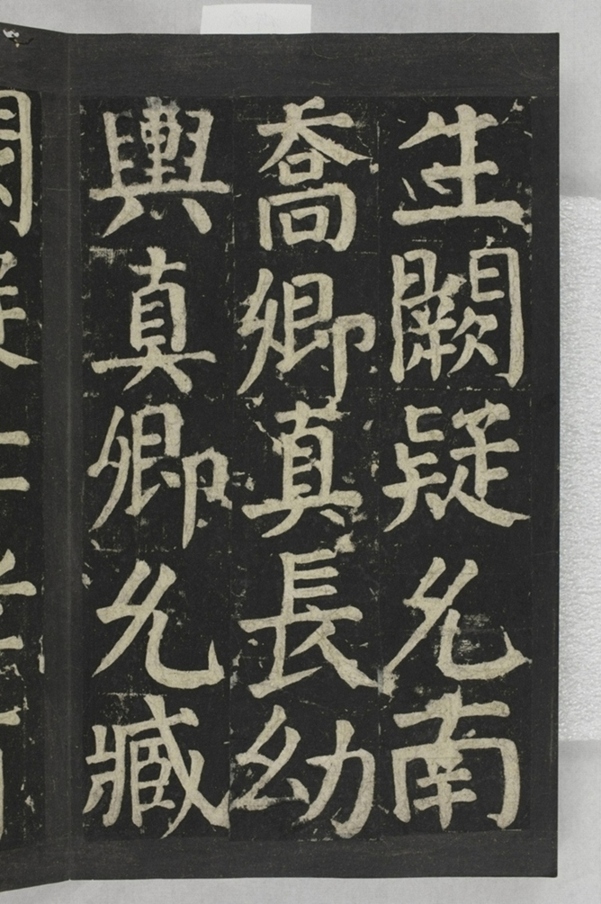 生闕疑允南
喬卿真長幼
輿真卿允臧